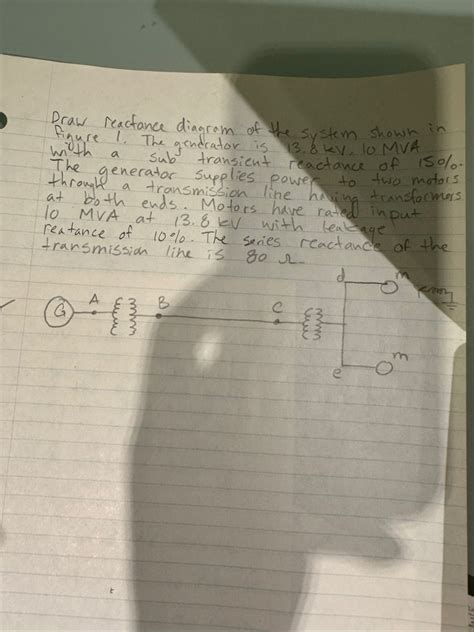 Draw reactance diagram of the system shown in
figure 1. The generator is 13.8 kV, 10 MVA
with a sub transient reactance of 15%.
The generator supplies power to two motors
through a transmission line having transformers
at both ends. Motors have rated input
10 MVA at 13.8 kV with leakage
reatance of 10%. The series reactance of the
transmission line is 80 Ω.
d m
G A B C
e m